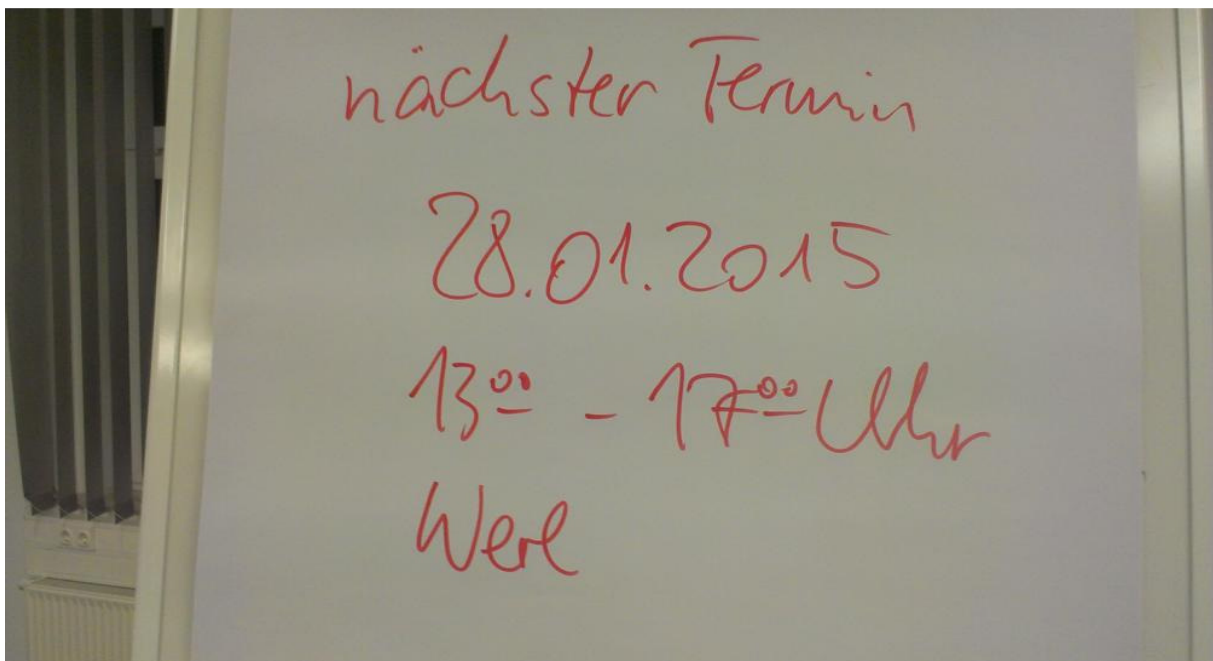 nächster Termin
28.01.2015
13⁰⁰ - 17⁰⁰ Uhr
Werl